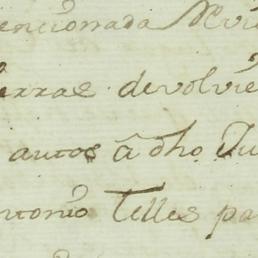 encionada
erras devolvie
autos â dho Ju
ntonio Telles pa